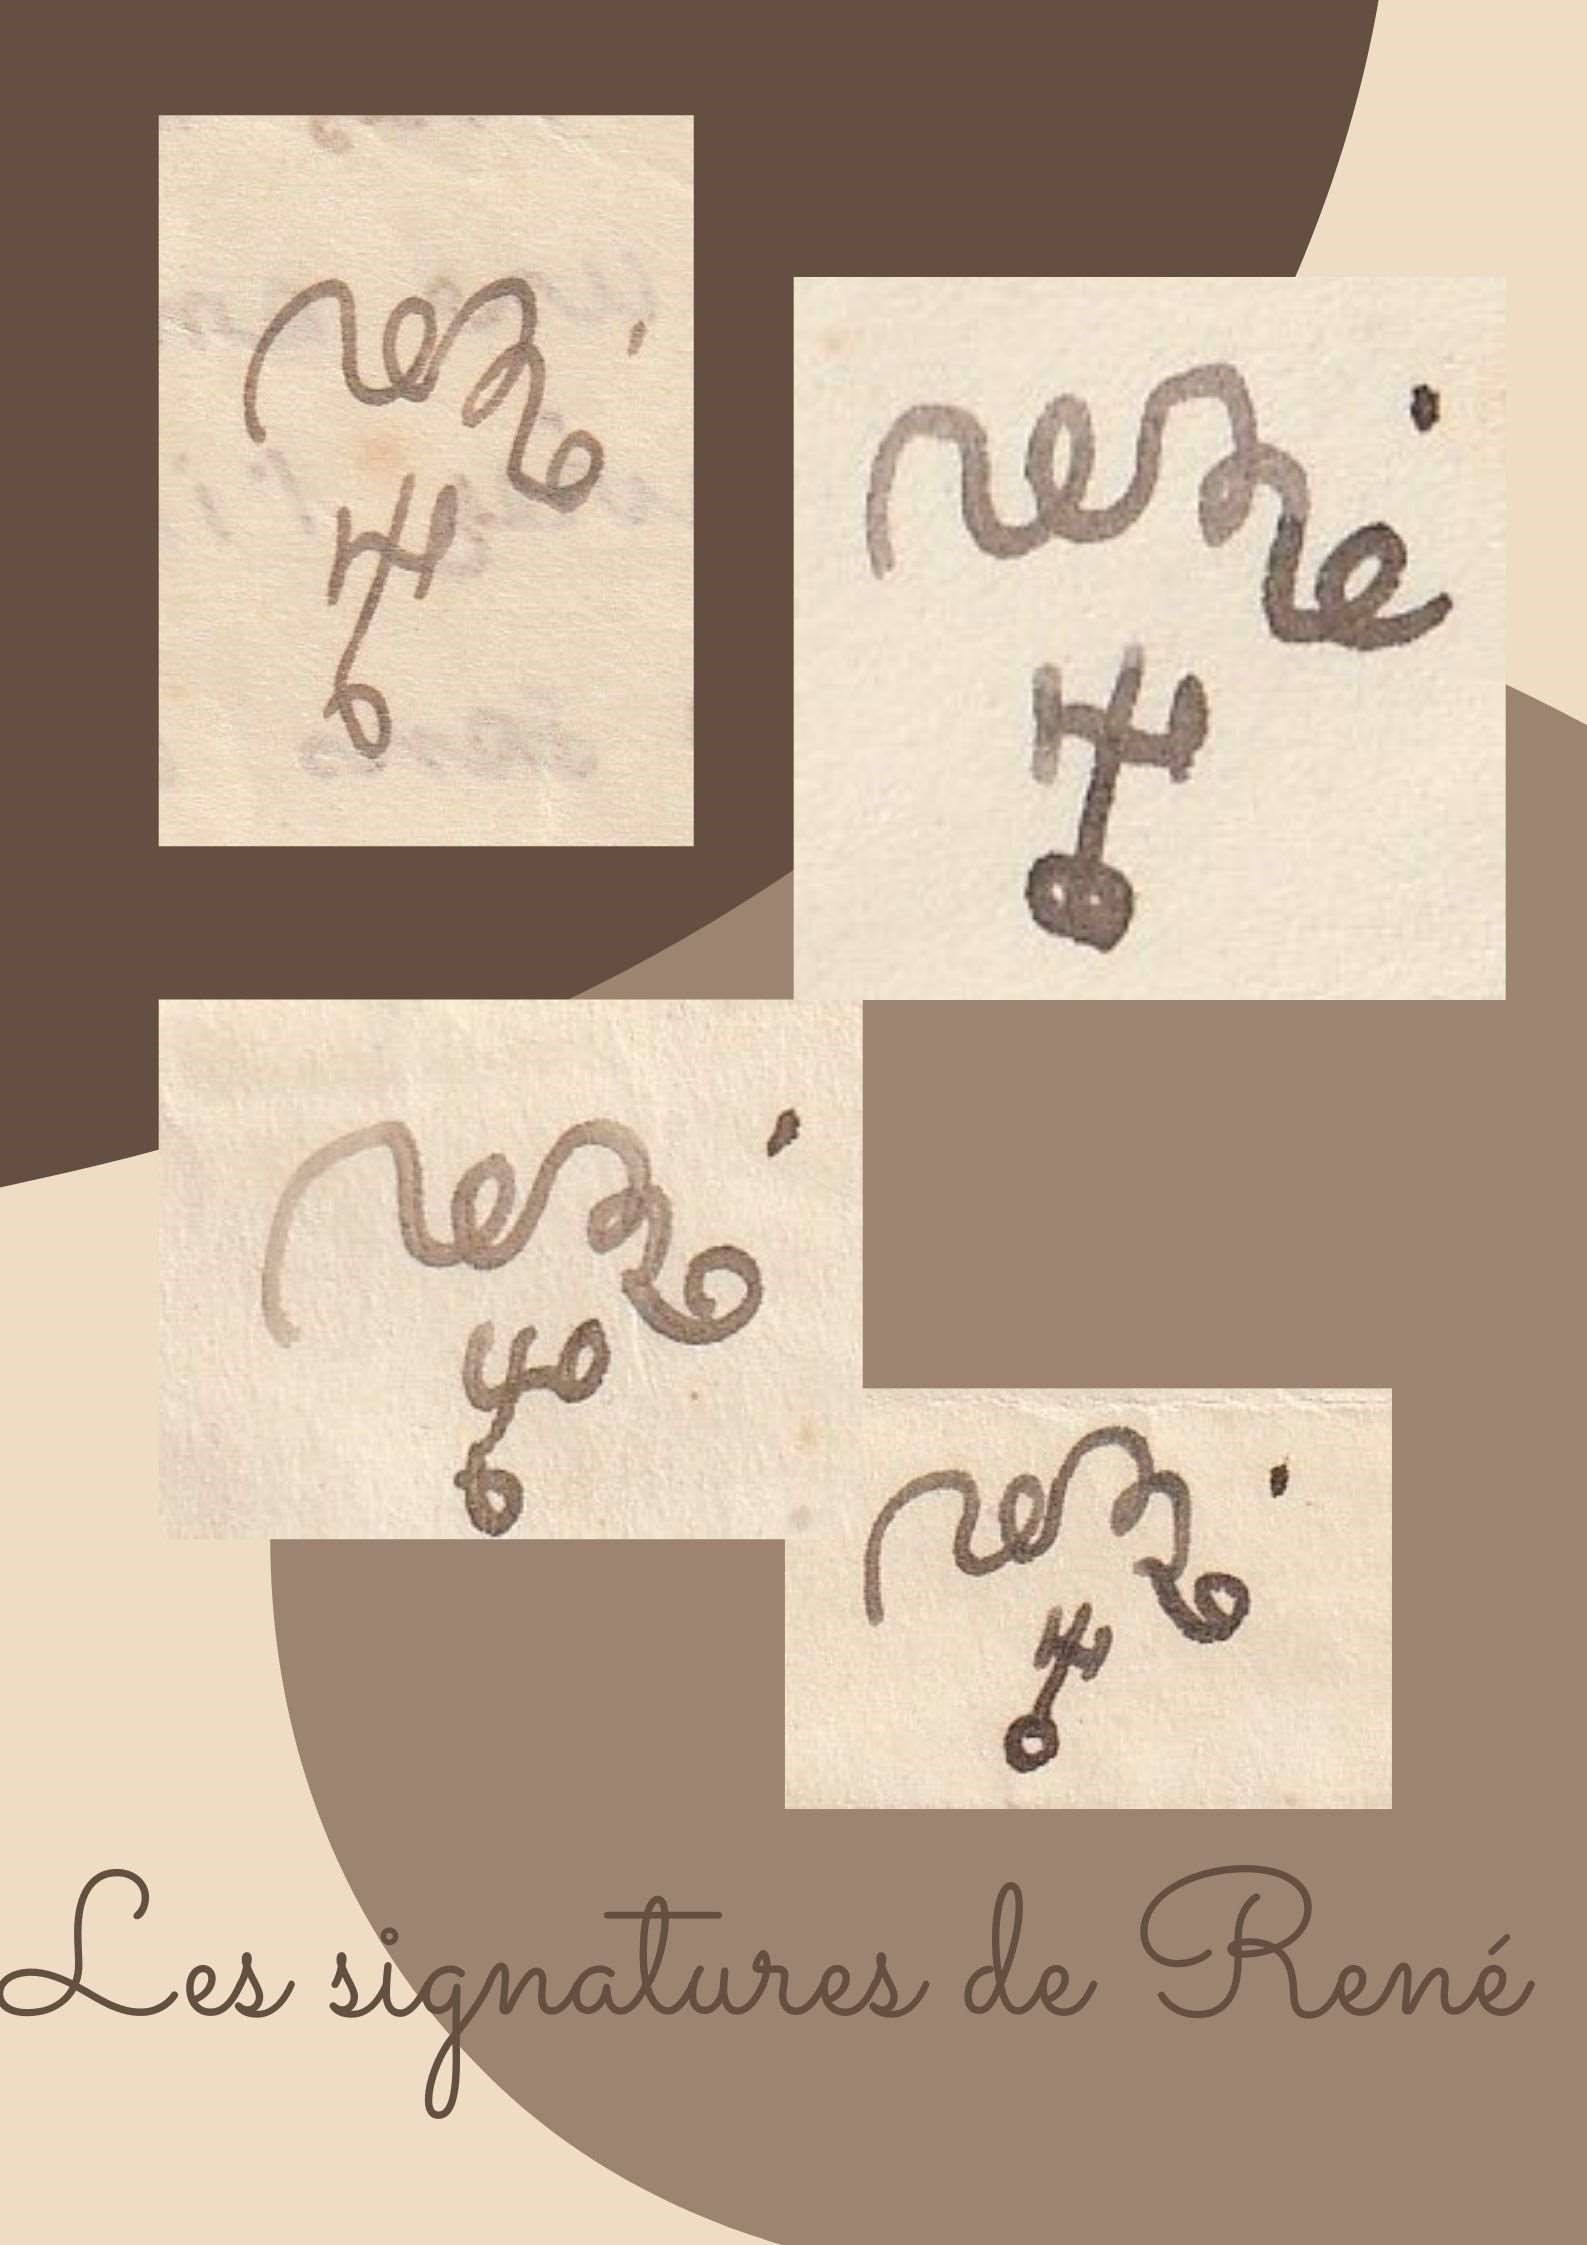 rené
rené
rené
rené
Les signatures de René